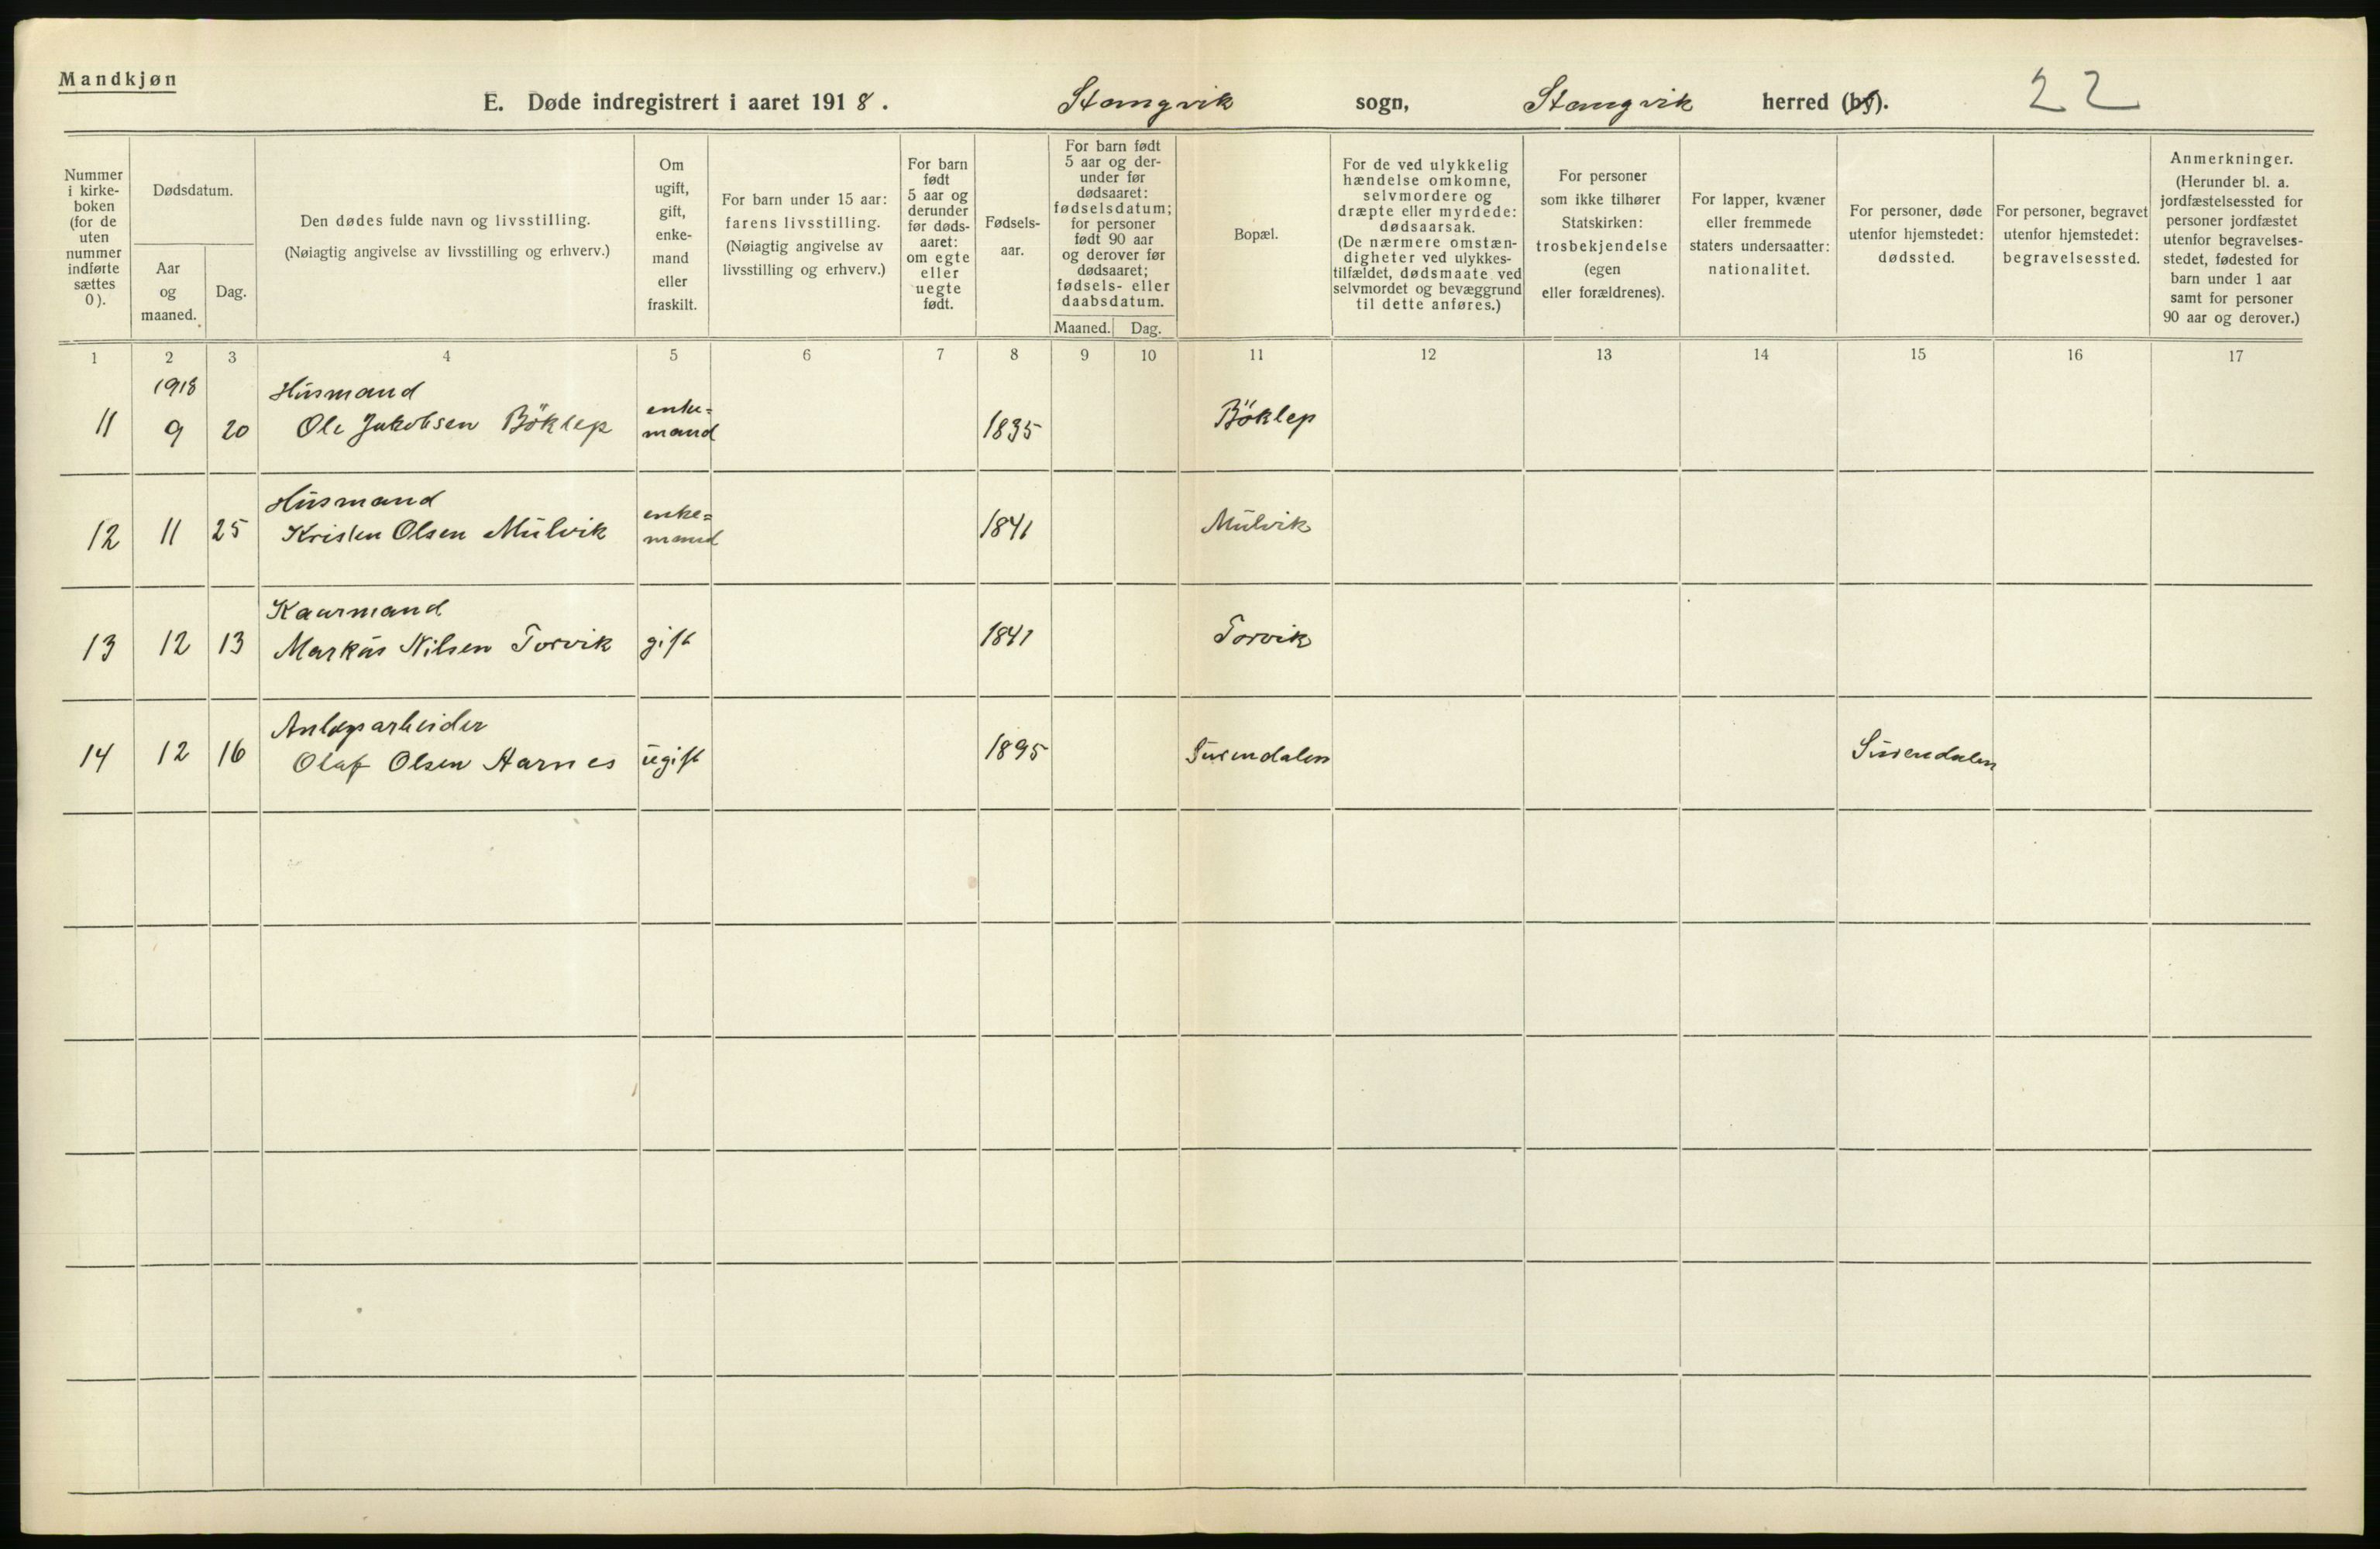 Mandkjøn
E. Døde indregistrert i aaret 1918. Stangvik sogn, Stangvik herred (by). 22
Nummer
i kirke-
boken
(for de
uten
nummer
indførte
sættes
0).
Dødsdatum.
Aar
og
maaned.
Dag.
Den dødes fulde navn og livsstilling.
(Nøiagtig angivelse av livsstilling og erhverv.)
Om
ugift,
gift,
enke-
mand
eller
fraskilt.
For barn under 15 aar:
farens livsstilling.
(Nøiagtig angivelse av
livsstilling og erhverv.)
For barn
født
5 aar og
derunder
før døds-
aaret:
om egte
eller
uegte
født.
Fødsels-
aar.
For barn født
5 aar og der-
under før
dødsaaret:
fødselsdatum;
for personer
født 90 aar
og derover før
dødsaaret;
fødsels- eller
daabsdatum.
Maaned. Dag.
Bopæl.
For de ved ulykkelig
hændelse omkomne,
selvmordere og
dræpte eller myrdede:
dødsaarsak.
(De nærmere omstæn-
digheter ved ulykkes-
tilfældet, dødsmaate ved
selvmordet og bevæggrund
til dette anføres.)
For personer
som ikke tilhører
Statskirken:
trosbekjendelse
(egen
eller forældrenes).
For lapper, kvæner
eller fremmede
staters undersaatter:
nationalitet.
For personer, døde
utenfor hjemstedet:
dødssted.
For personer, begravet
utenfor hjemstedet:
begravelsessted.
Anmerkninger.
(Herunder bl. a.
jordfæstelsessted for
personer jordfæstet
utenfor begravelses-
stedet, fødested for
barn under 1 aar
samt for personer
90 aar og derover.)
1 2 3 4 5 6 7 8 9 10 11 12 13 14 15 16 17
1918 Husmand
11 9 20 Ole Jakobsen Böklep enke=
mand 1835 Böklep
Husmand
12 11 25 Kristen Olsen Mulvik enke=
mand 1841 Mulvik
Kaarmand
13 12 13 Markus Nilsen Torvik gift 1841 Torvik
Anlægsarbeider
14 12 16 Olaf Olsen Aarnes ugift 1895 Surendalen Surendalen